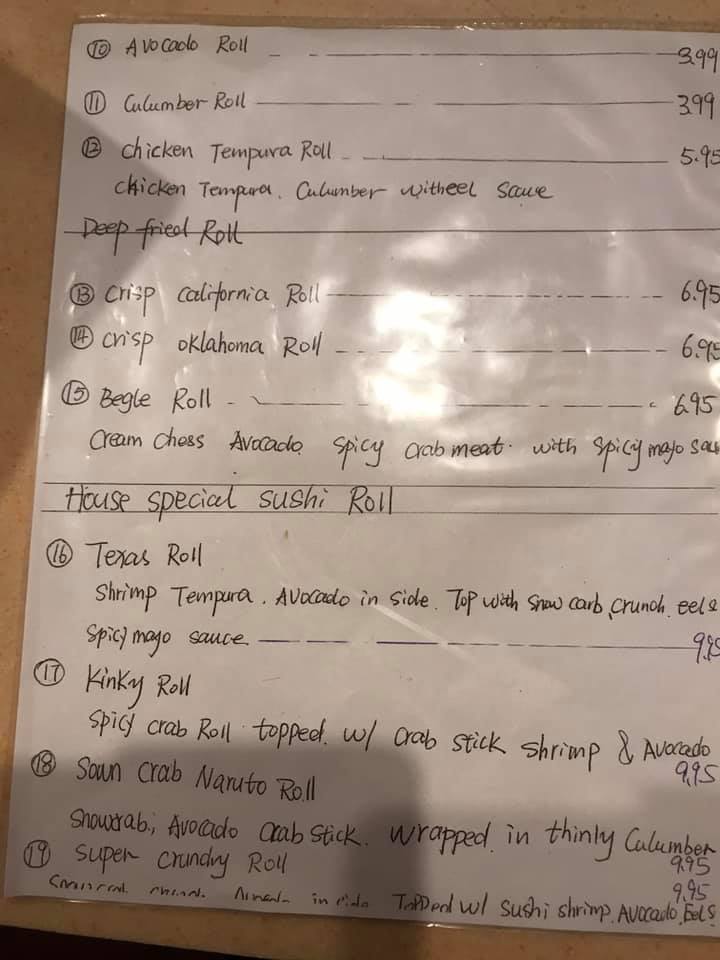 ⑩ Avocado Roll 3.99
⑪ Culumber Roll 3.99
⑫ Chicken Tempura Roll 5.95
Chicken Tempura. Culumber witheel sauce
Deep fried Roll
⑬ Crisp california Roll 6.95
⑭ Crisp oklahoma Roll 6.95
⑮ Begle Roll 6.95
Cream Chess Avocado Spicy Crab meat. with spicy mayo sau
House special sushi Roll
⑯ Texas Roll
Shrimp Tempura. Avocado in side. Top with snow carb, crunch. eel &
Spicy mayo sauce 9.95
⑰ Kinky Roll
Spicy crab Roll topped. w/ crab stick shrimp & Avocado
9.95
⑱ Soun Crab Naruto Roll
Snowcrab; Avocado Crab Stick. Wrapped in thinly Culumber
9.95
⑲ Super Crundry Roll
9.95
in side Topped w/ sushi shrimp. Avocado, Eel s